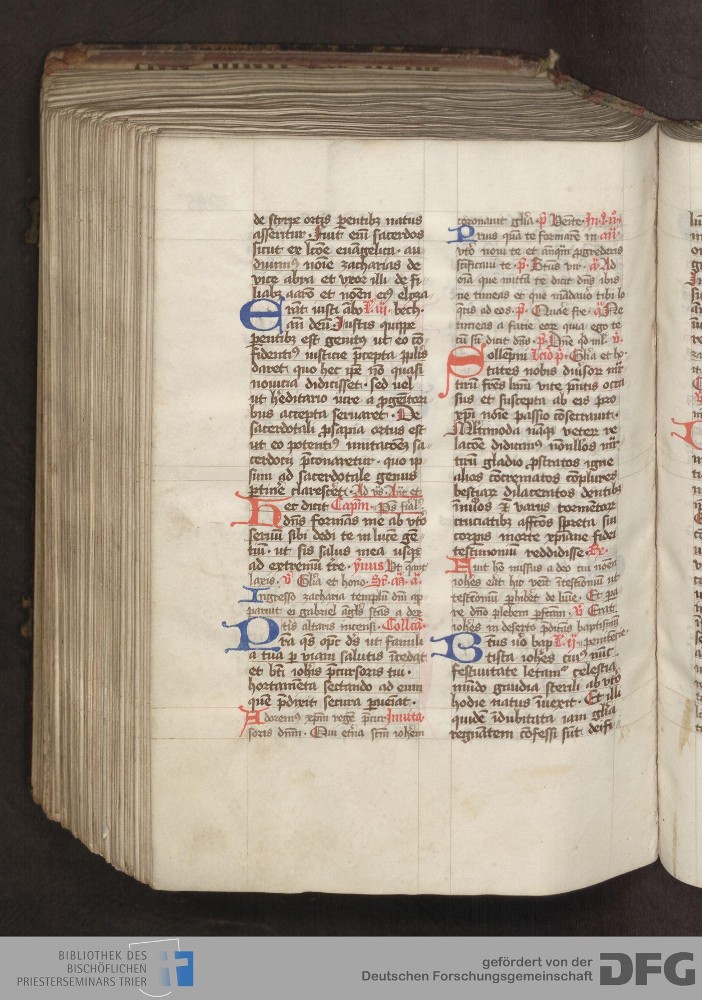 de styrpe ortis pentibz natus
asseritur · Fuit eni sacerdos
sicut ex lcoe euangelica · au
diuim9 noie zacharias de
vice abya et vxor illi de fi
liabz aaro et nomen ei9 elyza
Erat iusti abo L.iij. beth.
ani deum · Justis quippe
pentibz est genitus ut eo co
fidenti9 iusticie pcepta pplis
daret quo hec ipe no quasi
nouicia didicisset · sed uel
ut hereditario iure a pgenitori
bus accepta seruaret · De
sacerdotali psapia ortus est
ut eo potenti9 imitacoem sa
cerdocij pconaretur · quo ip
sum ad sacerdotale genus
ptine claresceret · Ad vs
Hec dicit Capm
dns formans me ab vto
seruu sibi dedi te in luce ge
tiu · ut sis salus mea usqz
ad extremu tre · ymus Vt queat
laxis · v Glia et hono
Ingresso zacharia templu dni ap
paruit ei gabriel agls stas a dex
tris altaris incensi · Collca ·
Pra qs opc ds ut famili
a tua p viam salutis incedat
et bti iohis pcursoris tui ·
hortameta sectando ad eum
que pdixit secura pueiat ·
Adorem9 xpm rege pcur Inuita
soris dnm · Qui
coronauit glia · p Venite · In · i · n
Prius qua te formare in · an ·
vto noui te et anqm pgredereris
scificaui te · p · Btus vir · a Ad
oia que mitta te dicit dns ibis
ne timeas et que madauero tibi lo
qris ad eos · p · Quare fre · a Ne
timeas a facie eor quia ego te
cu su dicit dns · p Dne qd ml · v
Sollepni Lcio p · Glia et ho ·
tates nobis diuisor mr
tiru fres
sus et suscepta ab eis pro
xpi noie passio cosecrauit ·
Multimoda naqz veter re
lacoe didicim9 nonullos mr
tiru gladio pstratos igne
alios concrematos coplures
bestiar dilaceratos dentibz
inulos z varus tormentor
cruciatibz affcos spreta sui
corpis morte xpiane fidei
testimoniu reddidisse · Rx ·
Fuit ho missus a deo cui nome
iohes erat hic venit i testioniu ut
testioniu phibet de lume · Et pa
re dno plebem pfcam · v Erat
iohes in deserto pdicas baptismu
Btus uo bap L.ij. penitencie
tista iohes cui9 nuc
festiuitate letam9 celestia
mudo gaudia sterili ab vto
hodie natus inuexit · Et illi
quide idubitata iam glia
regnatem cofessi sut · dei fi
BIBLIOTHEK DES
BISCHÖFLICHEN
PRIESTERSEMINARS TRIER
gefördert von der
Deutschen Forschungsgemeinschaft
DFG